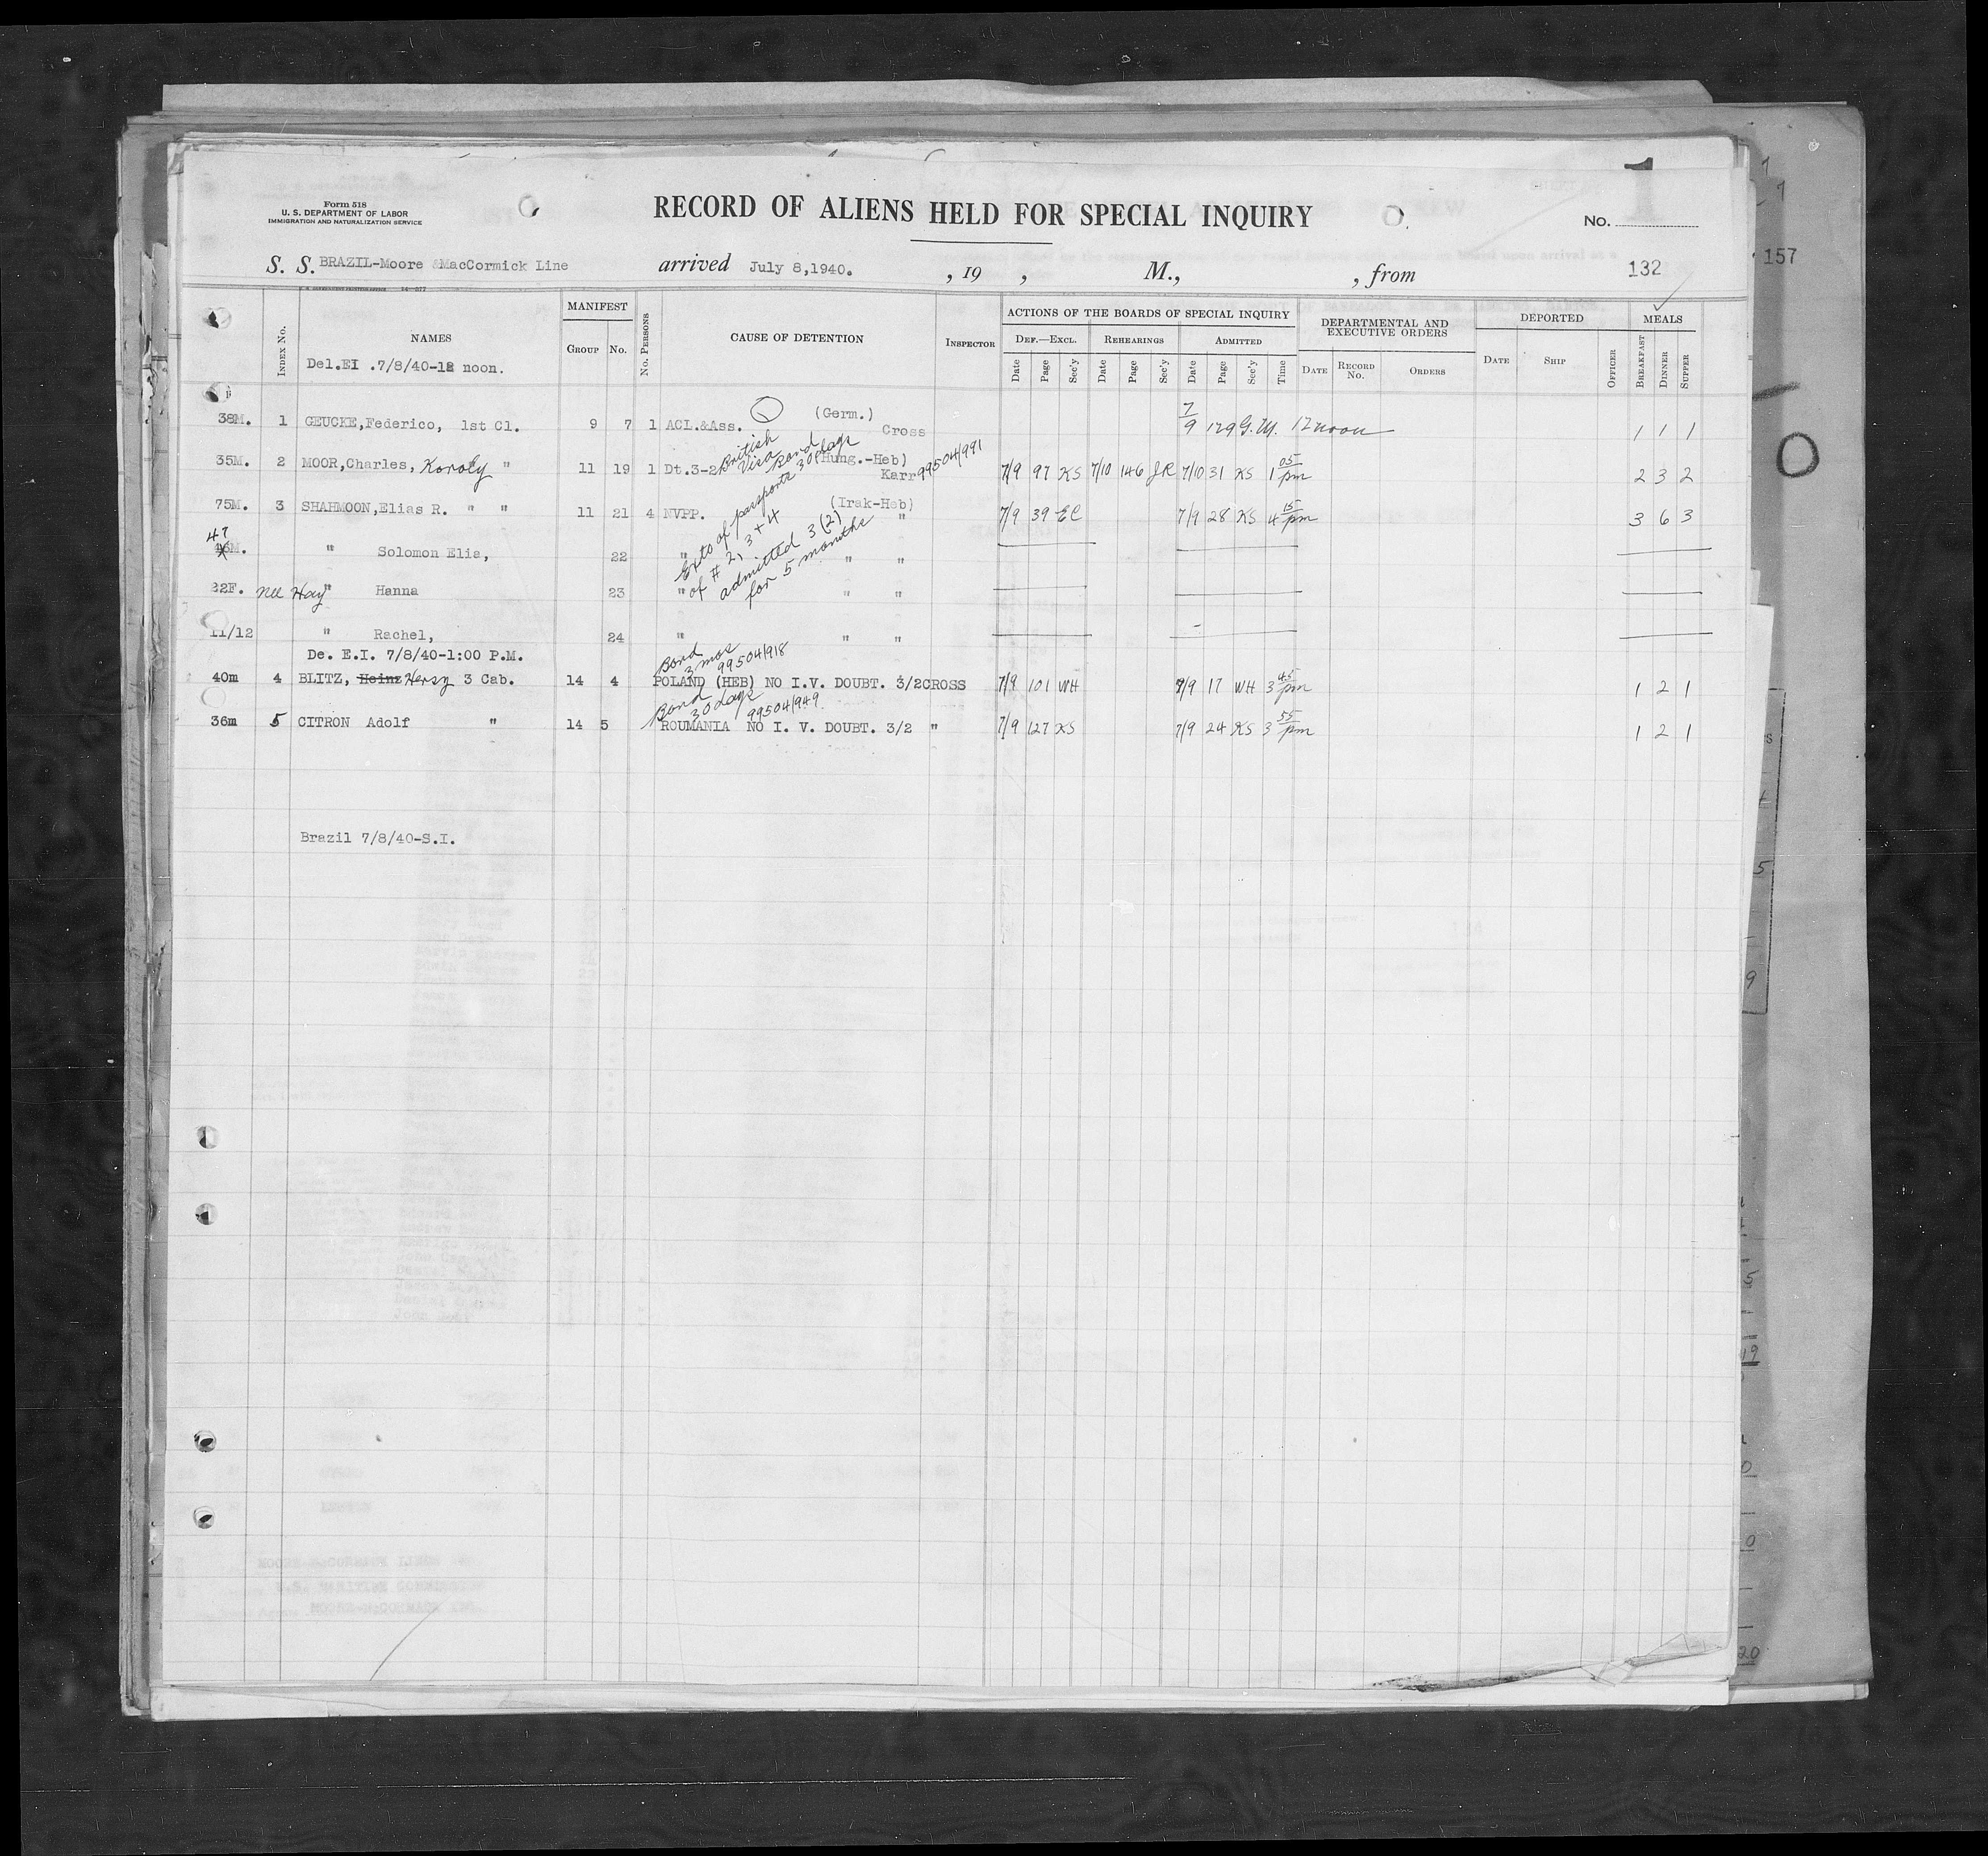 1
Form 518
U. S. DEPARTMENT OF LABOR
IMMIGRATION AND NATURALIZATION SERVICE
RECORD OF ALIENS HELD FOR SPECIAL INQUIRY
No.
S. S. BRAZIL-Moore &MacCormick Line arrived July 8,1940. , 19 , M., , from 132
157
INDEX No. NAMES MANIFEST GROUP No. No. PERSONS CAUSE OF DETENTION INSPECTOR
ACTIONS OF THE BOARDS OF SPECIAL INQUIRY
DEF.—EXCL. REHEARINGS ADMITTED
Date Page Sec'y Date Page Sec'y Date Page Sec'y Time
DEPARTMENTAL AND EXECUTIVE ORDERS
DATE RECORD No. ORDERS
DEPORTED
DATE SHIP OFFICER
MEALS
BREAKFAST DINNER SUPPER
Del.EI .7/8/40-12 noon.
38M. 1 GEUCKE,Federico, 1st Cl. 9 7 1 ACL.&Ass. (Germ.) Cross 7/9 129 G.M. 12 noon 1 1 1
British Visa Bond 30 days
35M. 2 MOOR,Charles, Karoly " 11 19 1 Dt.3-2 (Hung.-Heb) Karr 99504/991 7/9 97 KS 7/10 146 JR 7/10 31 KS 1 05 pm 2 3 2
75M. 3 SHAHMOON,Elias R. " " 11 21 4 NVPP. (Irak-Heb) " 7/9 39 EC 7/9 28 KS 4 15 pm 3 6 3
Exts of passports
of # 2, 3 + 4
admitted 3 (2)
for 5 months
47 M. " Solomon Elia, 22 " " "
22F. nee Hay " Hanna 23 " " "
11/12 " Rachel, 24 " " "
De. E.I. 7/8/40-1:00 P.M.
Bond 3 mos 99504/918
40m 4 BLITZ, Heinz Hersz 3 Cab. 14 4 POLAND (HEB) NO I.V. DOUBT. 3/2CROSS 7/9 101 WH 7/9 17 WH 3 45 pm 1 2 1
Bond 30 days 99504/949
36m 5 CITRON Adolf " 14 5 ROUMANIA NO I. V. DOUBT. 3/2 " 7/9 127 KS 7/9 24 KS 3 55 pm 1 2 1
Brazil 7/8/40-S.I.